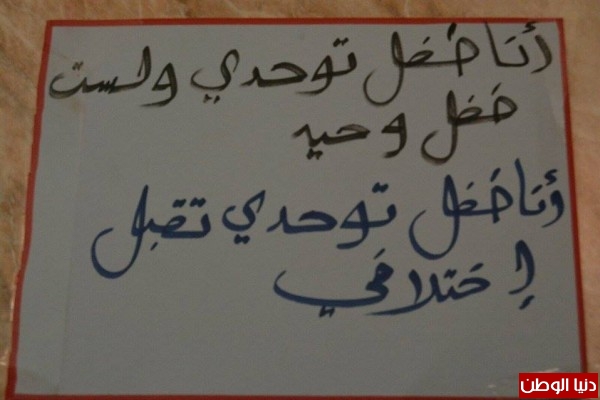 أنا طفل توحدي ولست
طفل وحيد
أنا طفل توحدي تقبل
إختلافي
دنيا الوطن